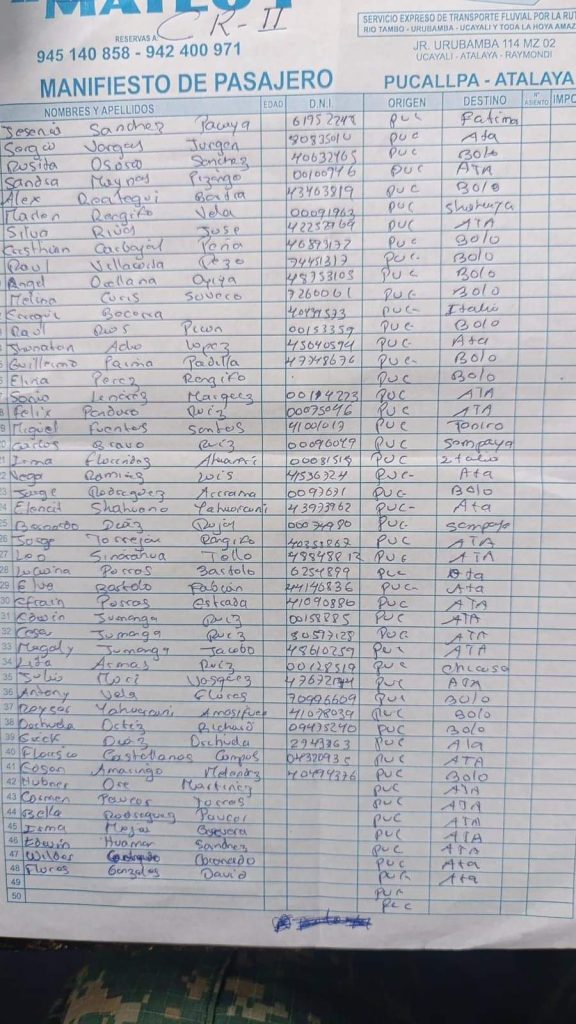 "MATEO I
CR-II
RESERVAS A:
945 140 858 - 942 400 971
SERVICIO EXPRESO DE TRANSPORTE FLUVIAL POR LA RUT
RIO TAMBO - URUBAMBA - UCAYALI Y TODA LA HOYA AMAZ
JR. URUBAMBA 114 MZ 02
UCAYALI - ATALAYA - RAYMONDI
MANIFIESTO DE PASAJERO PUCALLPA - ATALAYA
NOMBRES Y APELLIDOS EDAD D.N.I. ORIGEN DESTINO N° ASIENTO IMPO
Sanchez Pacaya 61952248 PUC Fatima
Sergio Vargas Jurgen PUC Ata
Rosita Osorio Sanchez 40632465 PUC Bolo
Sandra Maynas Pizango 00100946 PUC ATA
Alex Reategui Bardia 43463819 PUC Bolo
Marlon Rengifo Vela 00091963 PUC
Silva Rivas Jose 42252764 PUC ATA
Carbajal Peña 46893172 PUC Bolo
Raul Villacorta Rezo 74451317 PUC Bolo
Angel Orellana 48753105 PUC Bolo
Melina Curis Sovero 7260061 PUC Bolo
Becerra 40434573 PUC Italia
Raul Rios 00153359 PUC Bolo
Jhonatan Acho Lopez 45640594 PUC Ata
Guillermo Paima Padilla 47748676 PUC Bolo
6 Elina Perez Rengifo PUC Bolo
7 Sonia Marquez 00104223 PUC ATA
8 Felix Panduro Ruiz 00075046 PUC ATA
19 Miguel Fuentes Santos 41001017 PUC
20 Carlos Bravo Ruiz 00096049 PUC Sampaya
21 Irma Florendez 00081519 PUC Italia
22 Vega Ramirez Luis 4536324 PUC Ata
23 Jorge Rodreguez 0097631 PUC Bolo
24 Shahuano Yahuarcani 43973962 PUC Ata
25 Bernardo Diaz Rojas 00074980 PUC Sampaya
26 Jorge Torrejon Rengifo 40351867 PUC ATA
27 Leo Sinarahua Tello 48848812 PUC ATA
28 Porras Bartolo 6254899 PUC Ata
29 Elva Bartolo Fabian 44146836 PUC Ata
30 Efrain Porras Estrada 41090886 PUC ATA
31 Edwin Jumanga Ruiz 00158885 PUC ATA
32 Cesar Jumanga Ruiz 80517128 PUC ATA
33 Magaly Jumanga Jacobo 48610259 PUC ATA
34 Lida Armas Ruiz 00128519 PUC Chicosa
35 Julio Mori Vasquez 47672174 PUC ATA
36 Antony Vela Flores 70996609 PUC Bolo
37 Yahuarcani Amasifuen 41078039 PUC Bolo
38 Dachuda Ortiz Richard 09475240 PUC Bolo
39 Erick Diaz Dachuda 2943763 PUC Ata
40 Castellanos Campos 04320935 PUC ATA
41 Amaringo Melendez 40494376 PUC Bolo
42 Hubner Ore Martinez PUC ATA
43 Carmen Paucar Torres PUC ATA
44 Bella Rodreguez Paucar PUC ATA
45 Irma Mejos Guevara PUC ATA
46 Edwin Huaman Sandrez PUC ATA
47 Wilder Coronado PUC Ata
48 Flores Gonzales David PUC Ata
49 PUC
50 PUC